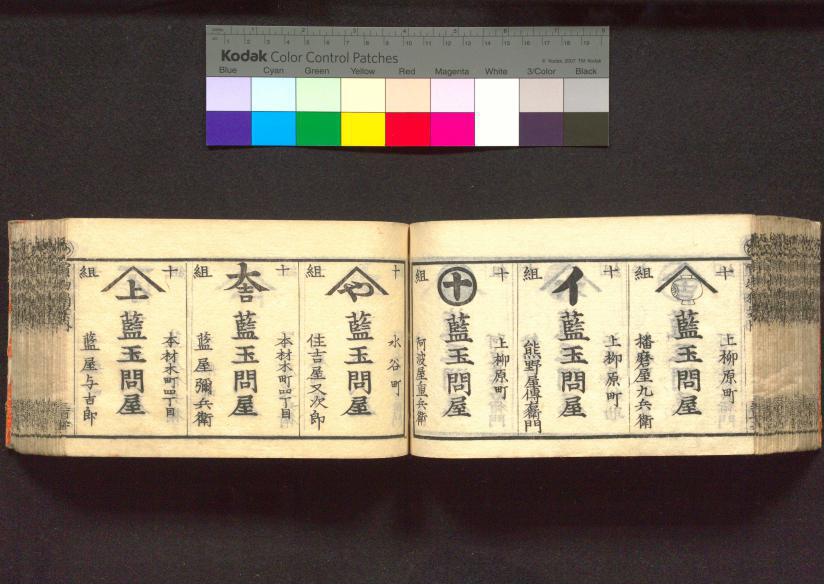 Kodak Color Control Patches
© Kodak, 2007 TM: Kodak
Blue Cyan Green Yellow Red Magenta White 3/Color Black
十 組
上柳原町
藍玉問屋
播磨屋九兵衛
十 組
イ
上柳原町
藍玉問屋
熊野屋傳右衛門
十 組
十
上柳原町
藍玉問屋
阿波屋重兵衛
十 組
や
水谷町
藍玉問屋
住吉屋又次郎
十 組
本材木町四丁目
藍玉問屋
藍屋彌兵衛
十 組
上
本材木町四丁目
藍玉問屋
藍屋与吉郎